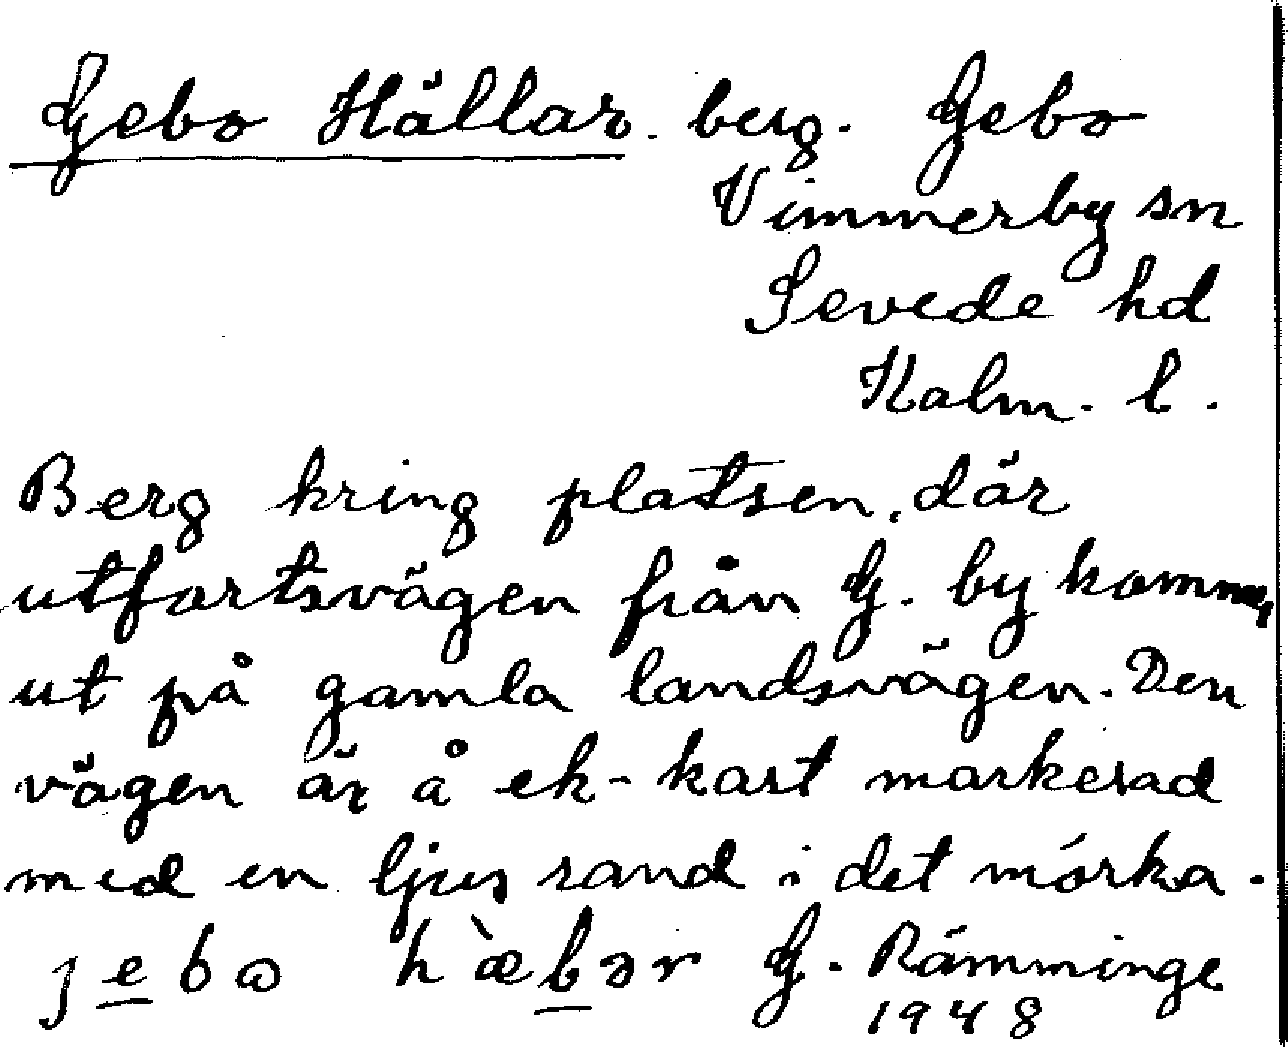 Gebo Hällar. berg. Gebo
Vimmerby sn
Sevede hd
Kalm. l.
Berg kring platsen, där
utfartsvägen från G. by kommer
ut på gamla landsvägen. Den
vägen är å ek-kart markerad
med en ljus rand i det mörka.
jebɷ hæ̀lər G. Rämminge
1948